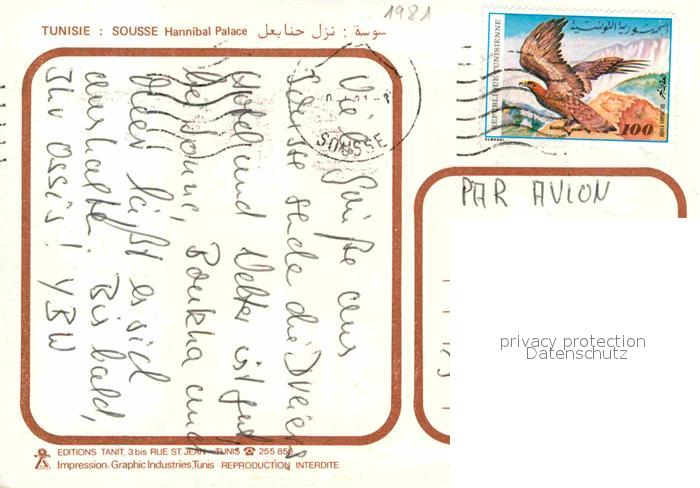 1981
TUNISIE : SOUSSE Hannibal Palace سوسة : نزل حنابعل
REPUBLIQUE TUNISIENNE
الجمهورية التونسية
100
SOUSSE
PAR AVION
Viele Grüße aus
Sousse sende die
Hotel und Wetter ist gut,
bei Sonne, Boukha und
läßt es sich
aushalten. Bis bald,
Ihr Ossis! YBW
privacy protection
Datenschutz
EDITIONS TANIT, 3 bis RUE ST. JEAN - TUNIS ☎ 255 856
Impression: Graphic Industries, Tunis REPRODUCTION INTERDITE